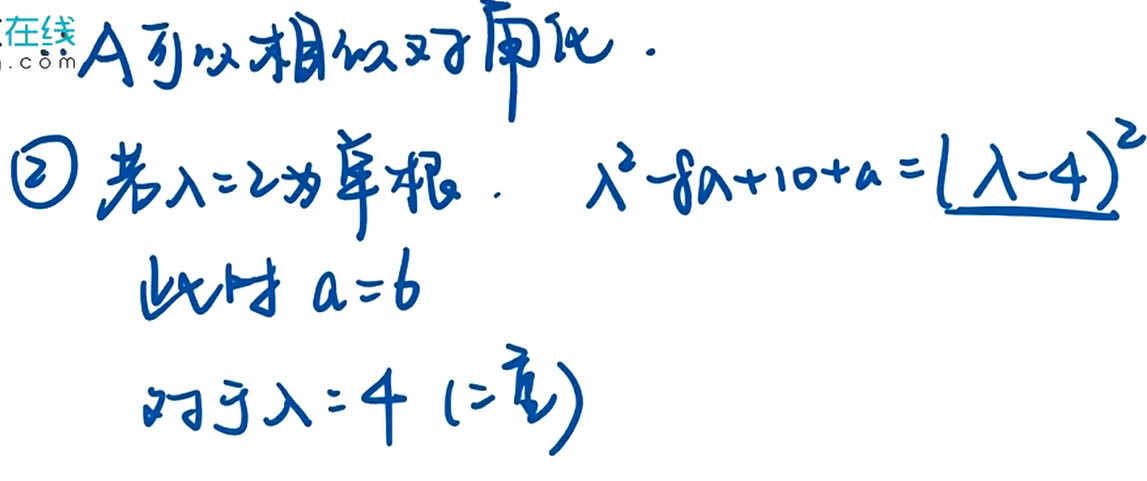 在线
.com
A可以相似对角化.
② 若λ=2为单根. λ²-8λ+10+a=(λ-4)²
此时 a=6
对于λ=4 (二重)